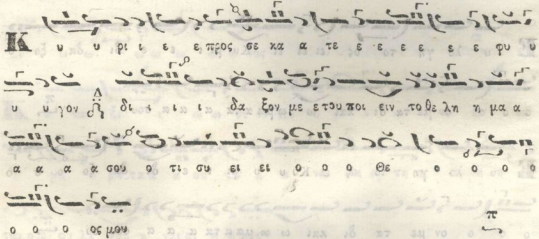 Κ υ υ ρι ε ε προς σε κα α τε ε ε ε ε ε ε φυ υ
υ υ γον δι ι ι ι δα ξον με ε του ποι ειν το θε λη η μα α
α α α α σου ο τι συ ει ει ο ο ο Θε ο ο ο ο
ο ο ο ος μου π